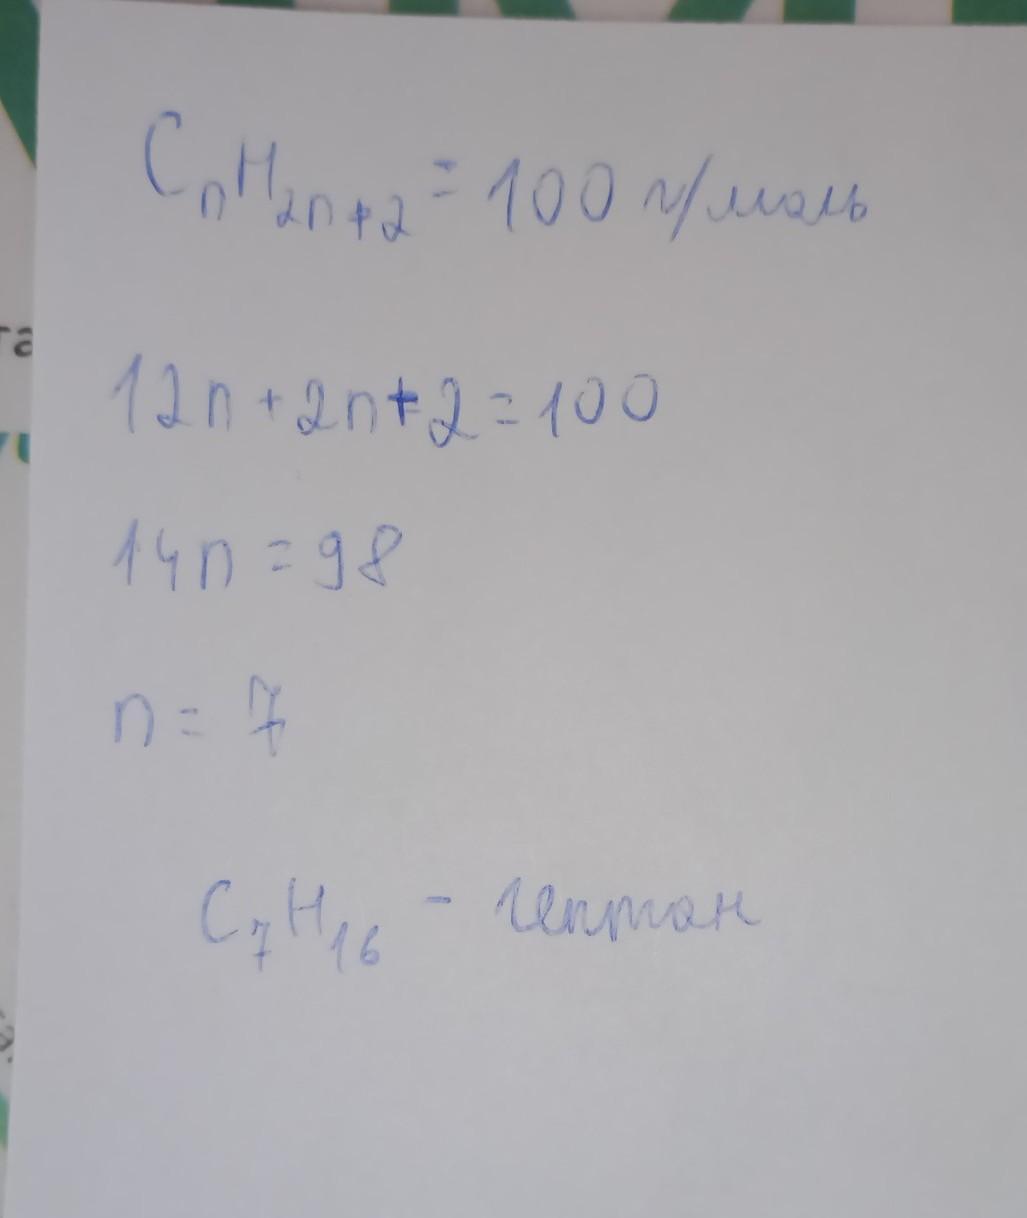 CₙH₂ₙ₊₂ = 100 г/моль
12n + 2n + 2 = 100
14n = 98
n = 7
C₇H₁₆ - гептан